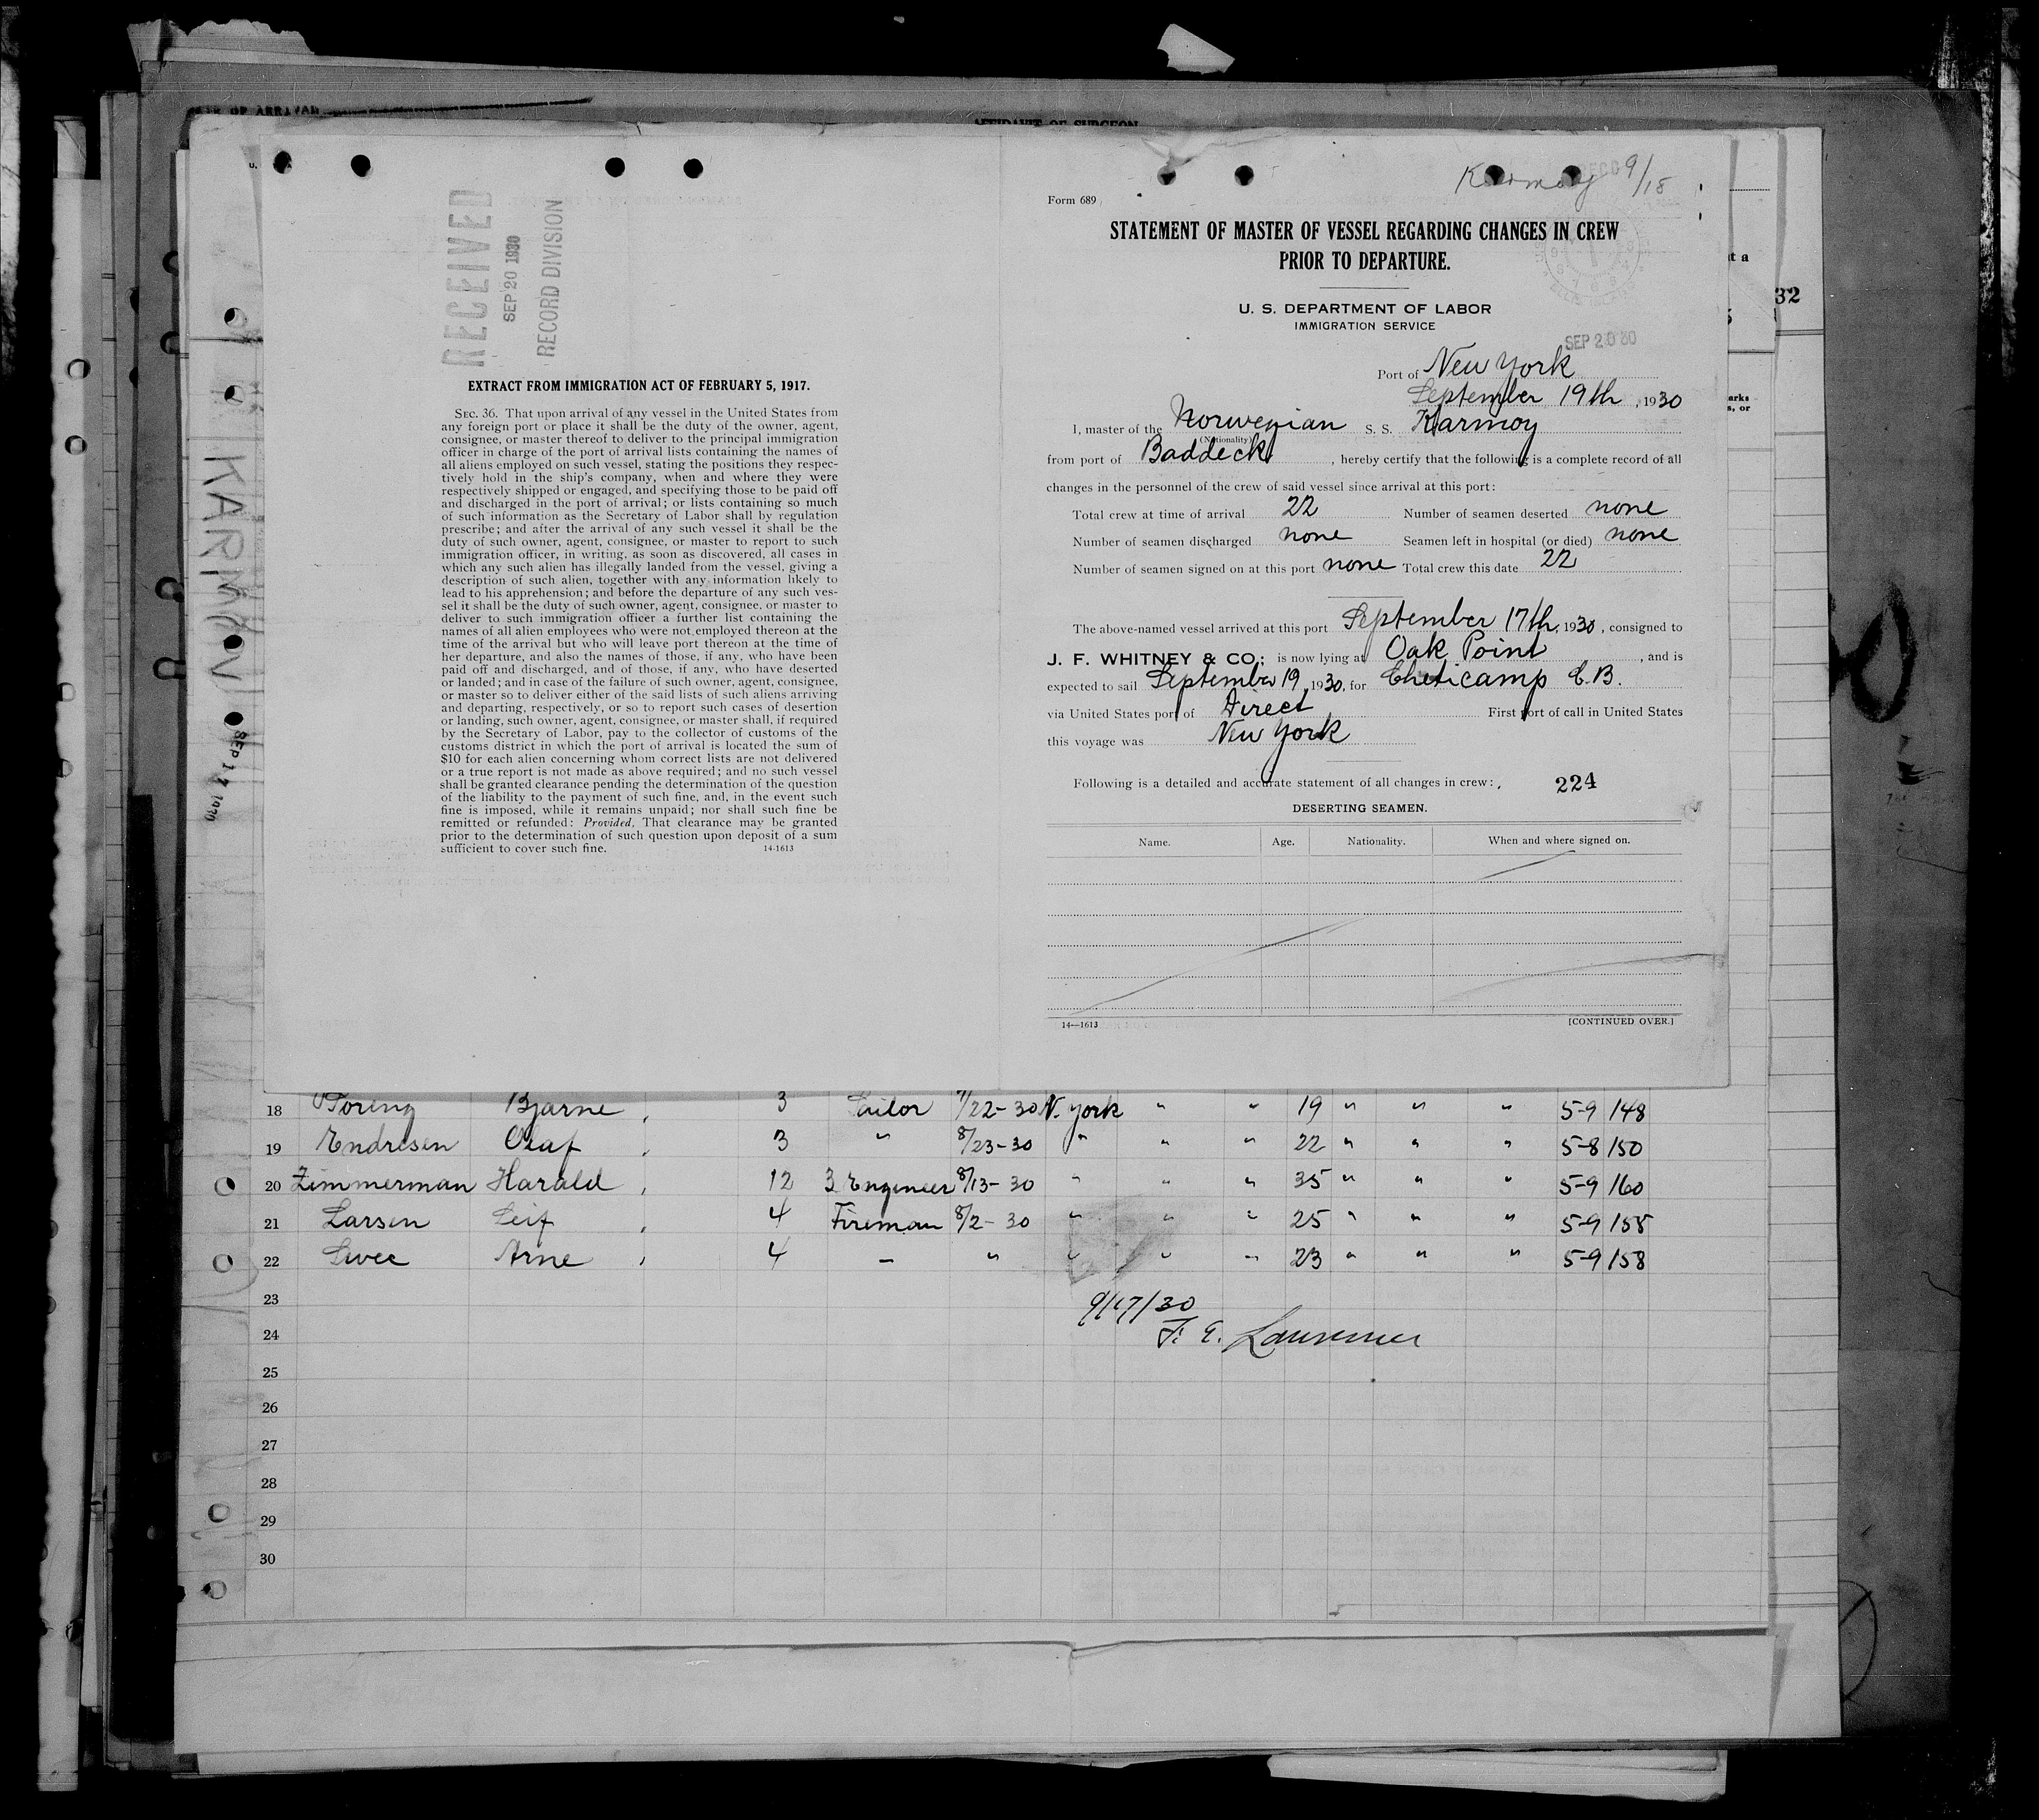 OF ARRIVAL
AFFIDAVIT OF SURGEON
RECEIVED
SEP 20 1930
RECORD DIVISION
EXTRACT FROM IMMIGRATION ACT OF FEBRUARY 5, 1917.
SEC. 36. That upon arrival of any vessel in the United States from
any foreign port or place it shall be the duty of the owner, agent,
consignee, or master thereof to deliver to the principal immigration
officer in charge of the port of arrival lists containing the names of
all aliens employed on such vessel, stating the positions they respec-
tively hold in the ship's company, when and where they were
respectively shipped or engaged, and specifying those to be paid off
and discharged in the port of arrival; or lists containing so much
of such information as the Secretary of Labor shall by regulation
prescribe; and after the arrival of any such vessel it shall be the
duty of such owner, agent, consignee, or master to report to such
immigration officer, in writing, as soon as discovered, all cases in
which any such alien has illegally landed from the vessel, giving a
description of such alien, together with any information likely to
lead to his apprehension; and before the departure of any such ves-
sel it shall be the duty of such owner, agent, consignee, or master to
deliver to such immigration officer a further list containing the
names of all alien employees who were not employed thereon at the
time of the arrival but who will leave port thereon at the time of
her departure, and also the names of those, if any, who have been
paid off and discharged, and of those, if any, who have deserted
or landed; and in case of the failure of such owner, agent, consignee,
or master so to deliver either of the said lists of such aliens arriving
and departing, respectively, or so to report such cases of desertion
or landing, such owner, agent, consignee, or master shall, if required
by the Secretary of Labor, pay to the collector of customs of the
customs district in which the port of arrival is located the sum of
$10 for each alien concerning whom correct lists are not delivered
or a true report is not made as above required; and no such vessel
shall be granted clearance pending the determination of the question
of the liability to the payment of such fine, and, in the event such
fine is imposed, while it remains unpaid; nor shall such fine be
remitted or refunded: Provided, That clearance may be granted
prior to the determination of such question upon deposit of a sum
sufficient to cover such fine. 14-1613
KARMOY
SEP 17 1930
Karmoy 9/18
Form 689
STATEMENT OF MASTER OF VESSEL REGARDING CHANGES IN CREW
PRIOR TO DEPARTURE.
U. S. DEPARTMENT OF LABOR
IMMIGRATION SERVICE
SEP 20 30
Port of New York
September 19th, 1930
I, master of the Norwegian S. S. Karmoy
(Nationality)
from port of Baddeck, hereby certify that the following is a complete record of all
changes in the personnel of the crew of said vessel since arrival at this port:
Total crew at time of arrival 22 Number of seamen deserted none
Number of seamen discharged none Seamen left in hospital (or died) none
Number of seamen signed on at this port none Total crew this date 22
The above-named vessel arrived at this port September 17th, 1930, consigned to
J. F. WHITNEY & CO; is now lying at Oak Point, and is
expected to sail September 19, 1930, for Cheticamp C.B.
via United States port of Direct First port of call in United States
this voyage was New York
Following is a detailed and accurate statement of all changes in crew:
224
DESERTING SEAMEN.
Name. Age. Nationality. When and where signed on.
14—1613 [CONTINUED OVER.]
t a
32
arks
s, or
18 Bjarne 3 Sailor 7/22-30 N. York " " 19 " " " 5-9 148
19 Endresen Olaf 3 " 8/23-30 " " " 22 " " " 5-8 150
20 Zimmerman Harald 12 3 Engineer 8/13-30 " " " 35 " " " 5-9 160
21 Larsen Leif 4 Fireman 8/2-30 " " " 25 " " " 5-9 158
22 Arne 4 – " " " " 23 " " " 5-9 158
23
9/17/30
24
25
26
27
28
29
30